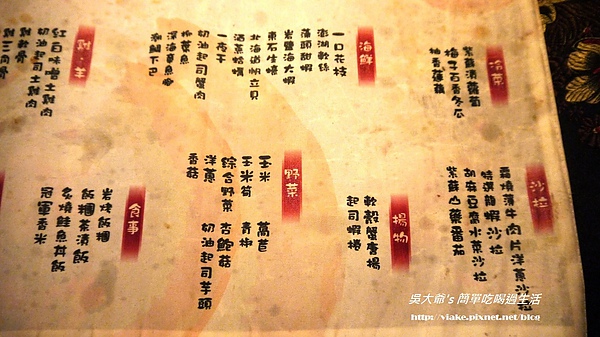 冷菜
紫蘇漬蘿蔔
梅子百香冬瓜
柚香蓮藕
海鮮
一口花枝
澎湖軟絲
蒲頭甜蝦
岩鹽海大蝦
東石生蠔
北海道帆立貝
酒蒸蛤蠣
一夜干
奶油起司蟹肉
柳葉魚
深海章魚
剝鯛下巴
雞.羊
紅白味噌土雞肉
奶油起司土雞肉
雞軟骨
雞三角骨
沙拉
霜燒薄牛肉片洋蔥沙拉
特選龍蝦沙拉
胡麻豆腐水菜沙拉
紫蘇山藥番茄
揚物
軟殼蟹唐揚
起司蝦捲
野菜
玉米 萵苣
玉米筍 青椒
綜合野菜 杏鮑菇
洋蔥 奶油起司芋頭
香菇
食事
岩烤飯糰
飯糰茶漬飯
炙燒鮭魚丼飯
冠軍香米
吳大爺's 簡單吃喝過生活
http://viake.pixnet.net/blog